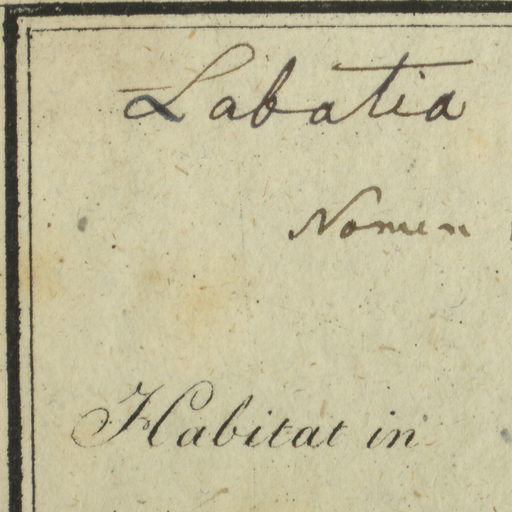 Labatia
Nomen
Habitat in